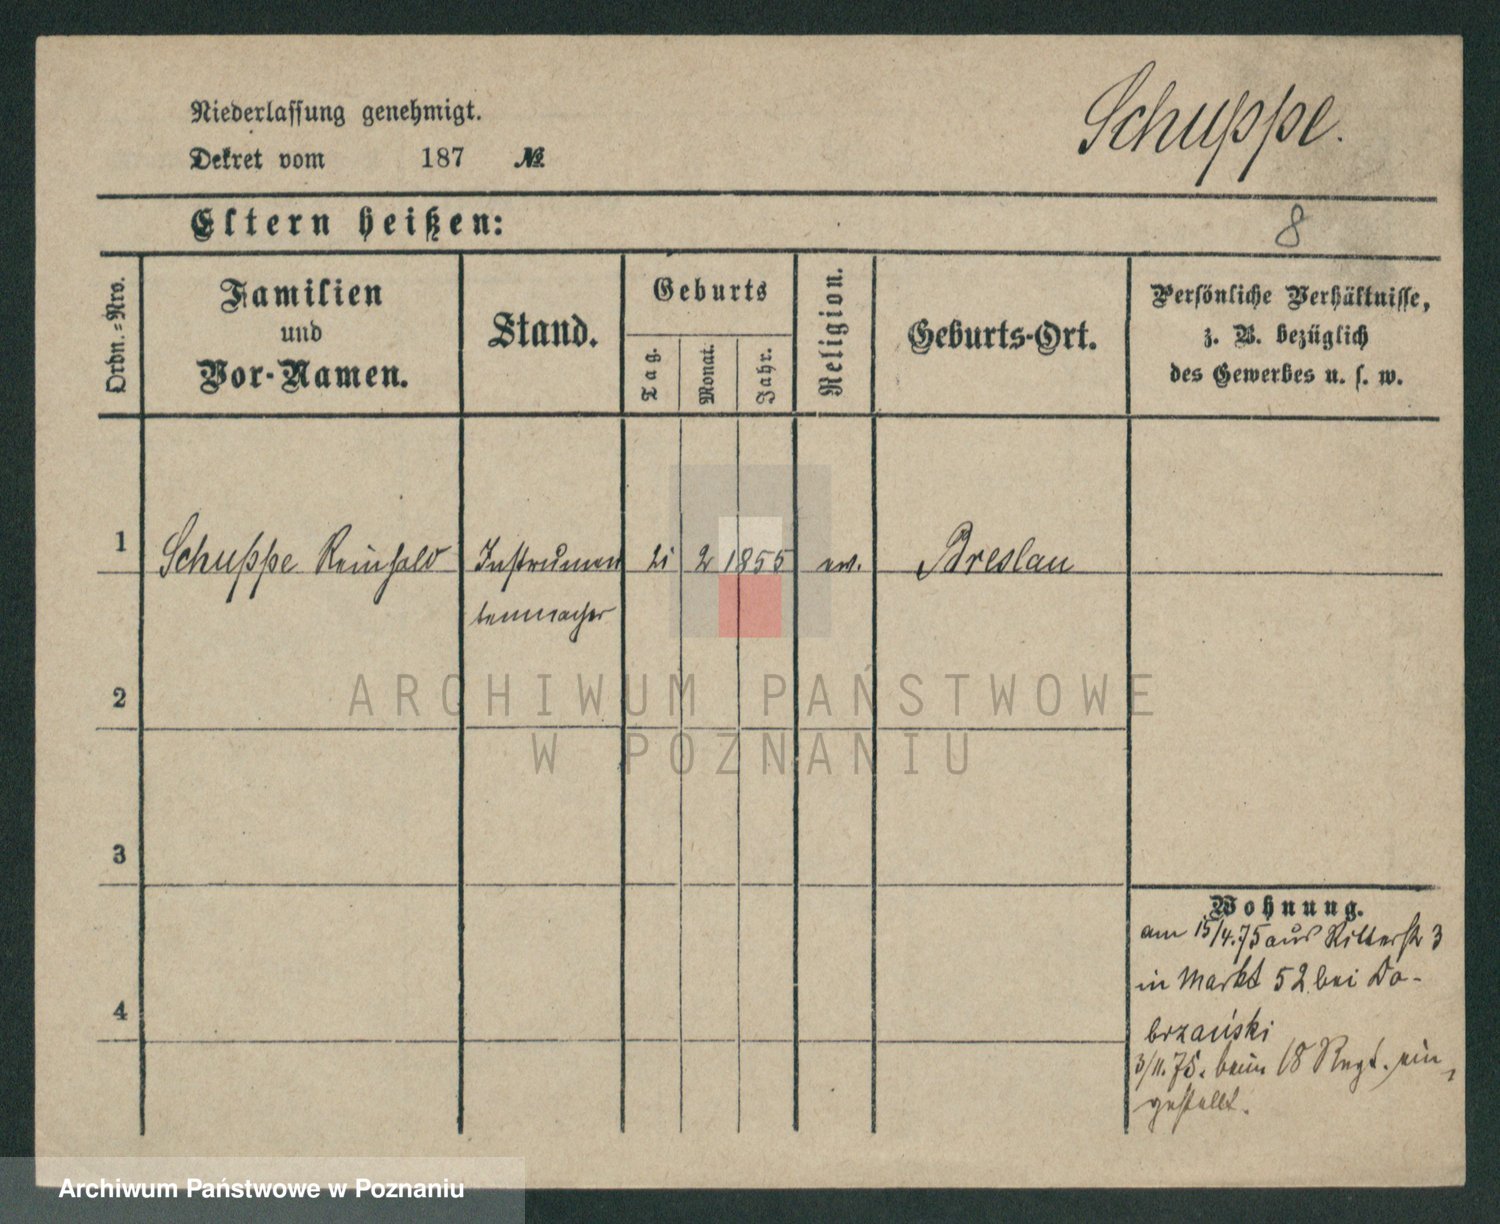 Schuppe.
Niederlassung genehmigt.
Dekret vom 187 №
Eltern heißen:
8
Ordn.=Nro.
Familien
und
Vor-Namen.
Stand.
Geburts
Tag.
Monat.
Jahr.
Religion.
Geburts-Ort.
Persönliche Verhältnisse,
z. B. bezüglich
des Gewerbes u. s. w.
1 Schuppe Reinhold Instrumen 21 2 1855 ev. Breslau
tenmacher
2
ARCHIWUM PAŃSTWOWE
W POZNANIU
3
Wohnung.
am 15/4.75 aus Ritterstr 3
in Markt 52 bei Do-
brzański
4
3/11.75. beim 18 Regt. ein-
gestellt.
Archiwum Państwowe w Poznaniu